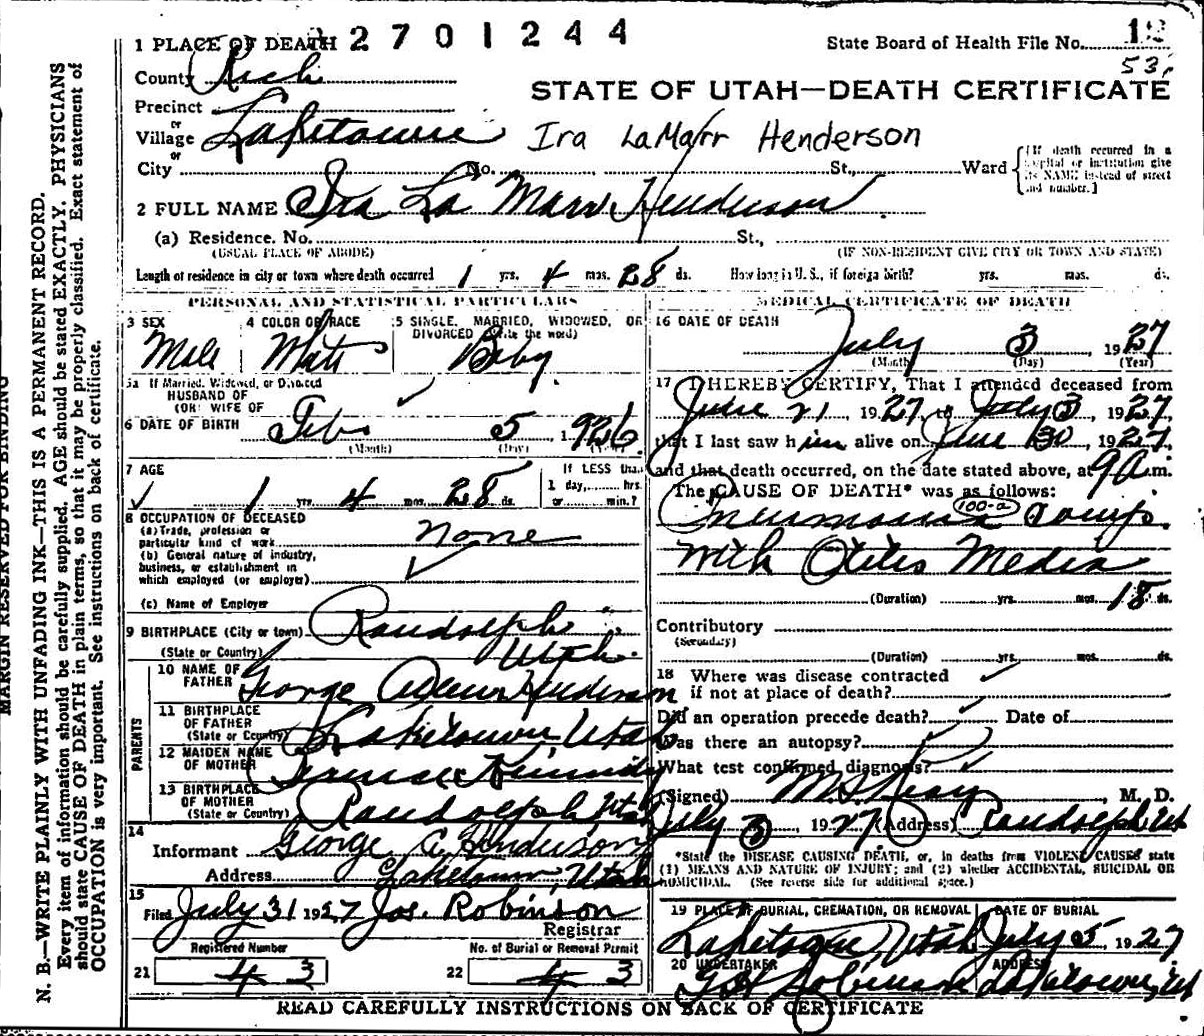 1 PLACE OF DEATH 2 7 0 1 2 4 4
State Board of Health File No. 18
53
County Rich
STATE OF UTAH—DEATH CERTIFICATE
Precinct
or
Village Laketown
Ira LaMarr Henderson
or
City No. St., Ward
[If death occurred in a hospital or institution give its NAME instead of street and number.]
2 FULL NAME Ira La Marr Henderson
(a) Residence. No. St.,
(USUAL PLACE OF ABODE) (IF NON-RESIDENT GIVE CITY OR TOWN AND STATE)
Length of residence in city or town where death occurred 1 yrs. 4 mos. 28 ds. How long in U. S., if foreign birth? yrs. mos. ds.
PERSONAL AND STATISTICAL PARTICULARS
3 SEX 4 COLOR OR RACE 5 SINGLE, MARRIED, WIDOWED, OR
DIVORCED (Write the word)
Male White Baby
5a If Married, Widowed, or Divorced
HUSBAND OF
(OR) WIFE OF
6 DATE OF BIRTH Feb 5, 1926
(Month) (Day)
7 AGE If LESS than
1 day, hrs.
1 yrs. 4 mos. 28 ds. or min.?
8 OCCUPATION OF DECEASED
(a) Trade, profession or
particular kind of work none
(b) General nature of industry,
business, or establishment in
which employed (or employer)
(c) Name of Employer
9 BIRTHPLACE (City or town) Randolph
(State or Country) Utah.
PARENTS
10 NAME OF
FATHER George Henderson
11 BIRTHPLACE
OF FATHER
(State or Country) Laketown, Utah
12 MAIDEN NAME
OF MOTHER Kennedy
13 BIRTHPLACE
OF MOTHER
(State or Country) Randolph, Utah
14
Informant George A Henderson
Address Laketown, Utah
15
Filed July 31 1927 Jos. Robinson
Registrar
Registered Number No. of Burial or Removal Permit
21 4 3 22 4 3
MEDICAL CERTIFICATE OF DEATH
16 DATE OF DEATH
July 3 1927
(Month) (Day) (Year)
17 I HEREBY CERTIFY, That I attended deceased from
June 21, 1927, to July 3, 1927
that I last saw him alive on June 30, 1927
and that death occurred, on the date stated above, at 9 a.m.
The CAUSE OF DEATH* was as follows:
100-a
Pneumonia Comp.
with Otitis Media
(Duration) yrs. mos. 18 ds.
Contributory
(Secondary)
(Duration) yrs. mos. ds.
18 Where was disease contracted
if not at place of death?
Did an operation precede death? Date of
Was there an autopsy?
What test confirmed diagnosis?
(Signed) , M. D.
July 3, 1927 (Address) Randolph Ut
*State the DISEASE CAUSING DEATH, or, in deaths from VIOLENT CAUSES state
(1) MEANS AND NATURE OF INJURY; and (2) whether ACCIDENTAL, SUICIDAL OR
HOMICIDAL. (See reverse side for additional space.)
19 PLACE OF BURIAL, CREMATION, OR REMOVAL DATE OF BURIAL
Laketown, Utah July 5, 1927
20 UNDERTAKER ADDRESS
Robinson Laketown, Ut
READ CAREFULLY INSTRUCTIONS ON BACK OF CERTIFICATE
MARGIN RESERVED FOR BINDING
N. B.—WRITE PLAINLY WITH UNFADING INK—THIS IS A PERMANENT RECORD.
Every item of information should be carefully supplied. AGE should be stated EXACTLY. PHYSICIANS
should state CAUSE OF DEATH in plain terms, so that it may be properly classified. Exact statement of
OCCUPATION is very important. See instructions on back of certificate.